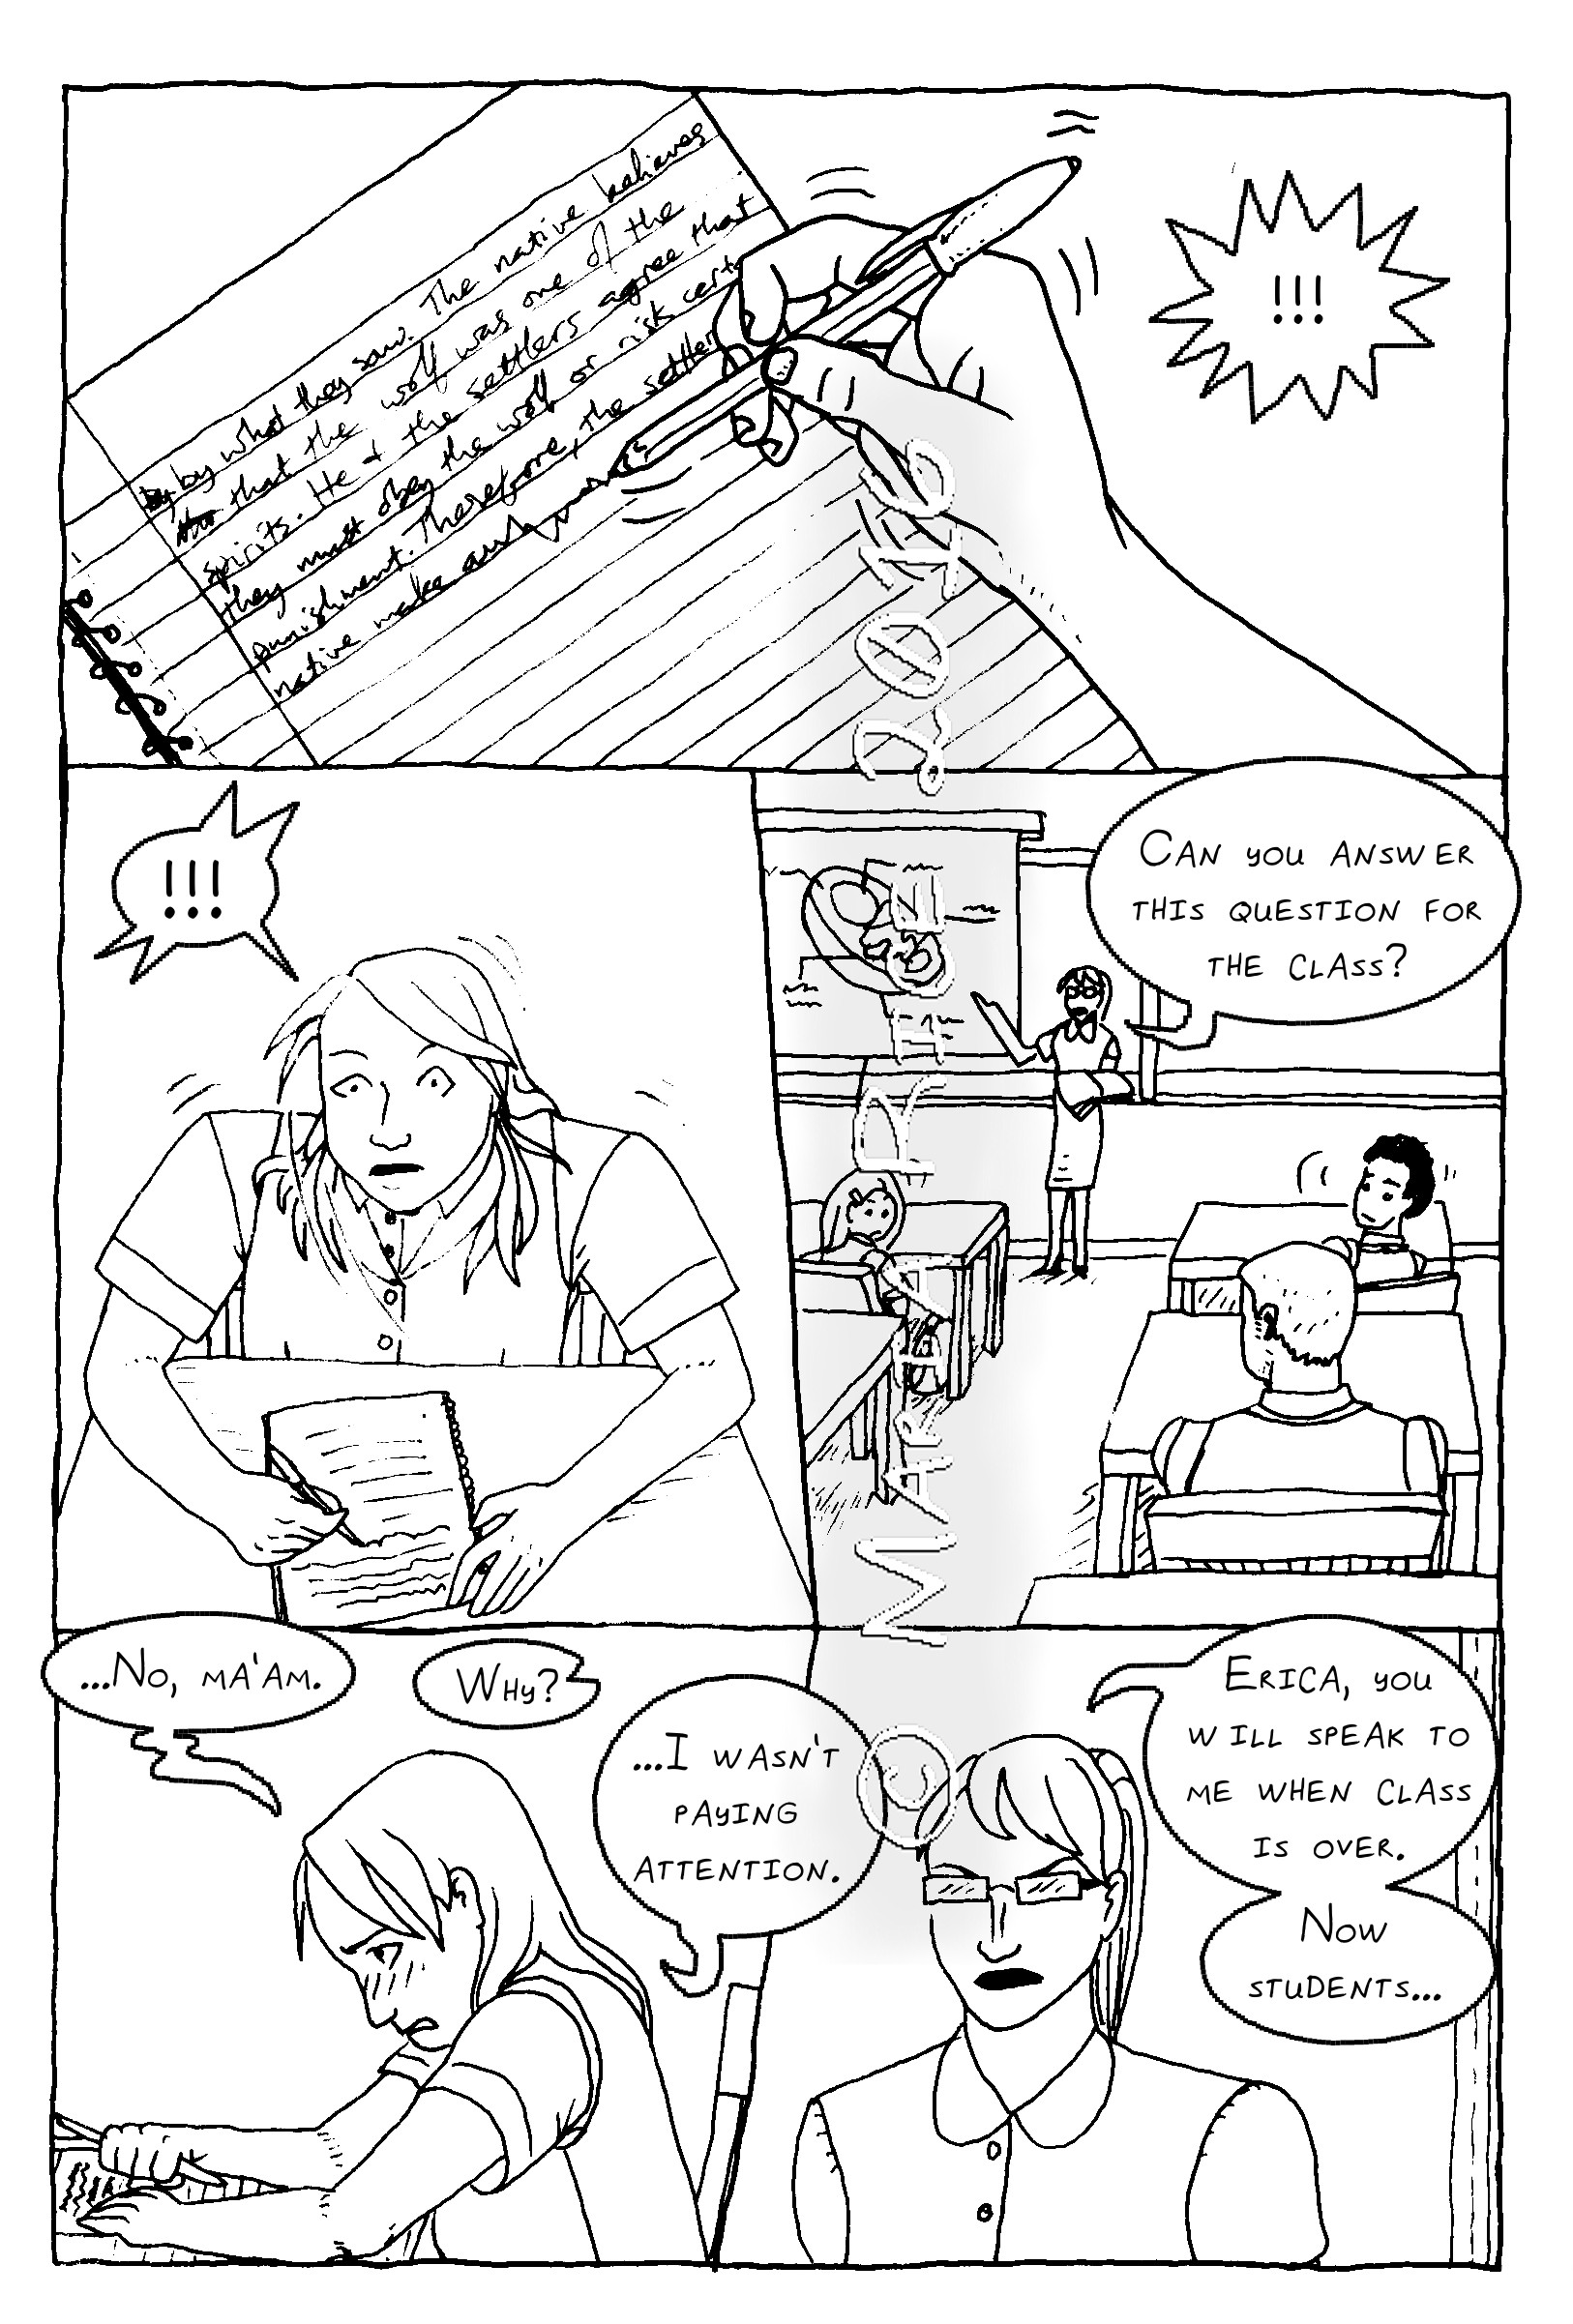 by by what they saw. The native believes
that the wolf was one of the
spirits. He & the settlers agree that
they must obey the wolf or risk cert
punishment. Therefore, the settler
native make
!!!
!!!
CAN YOU ANSWER
THIS QUESTION FOR
THE CLASS?
...NO, MA'AM.
WHY?
...I WASN'T
PAYING
ATTENTION.
ERICA, YOU
WILL SPEAK TO
ME WHEN CLASS
IS OVER.
NOW
STUDENTS...
© MARA RITE 2016